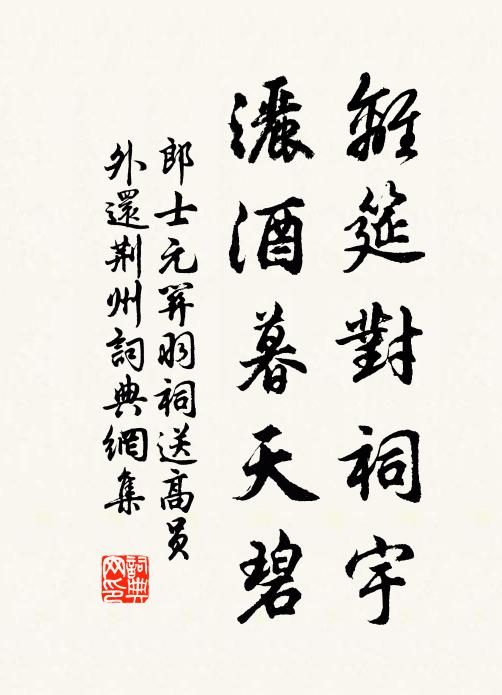 離筵對祠宇
灑酒暮天碧
郎士元關羽祠送高員
外還荆州詞典網集
詞典
网印